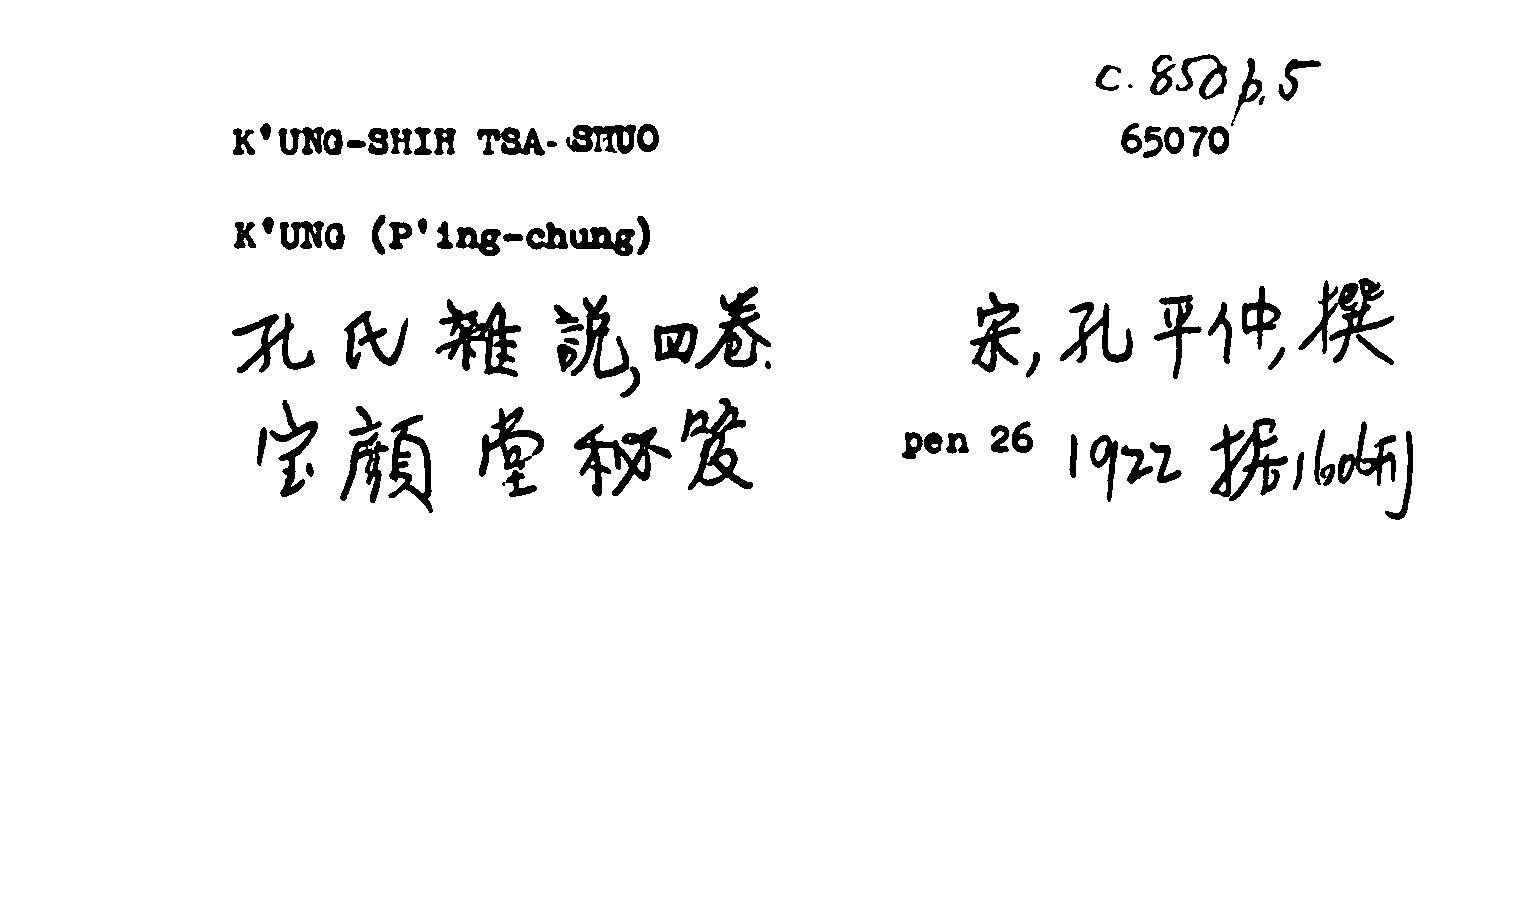 c. 850 p. 5
K'UNG-SHIH TSA-SHUO 65070
K'UNG (P'ing-chung)
孔氏雜說, 四卷. 宋, 孔平仲, 撰
宝顔堂秘笈 pen 26 1922 据1606刊